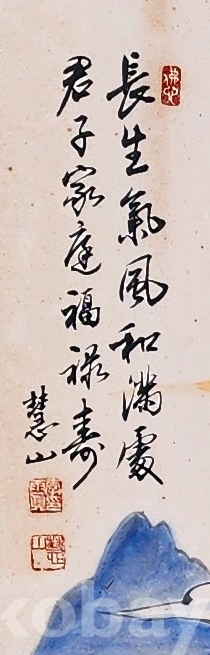 長生氣風和滿處
君子家庭福祿壽
慧山
佛心
kobay